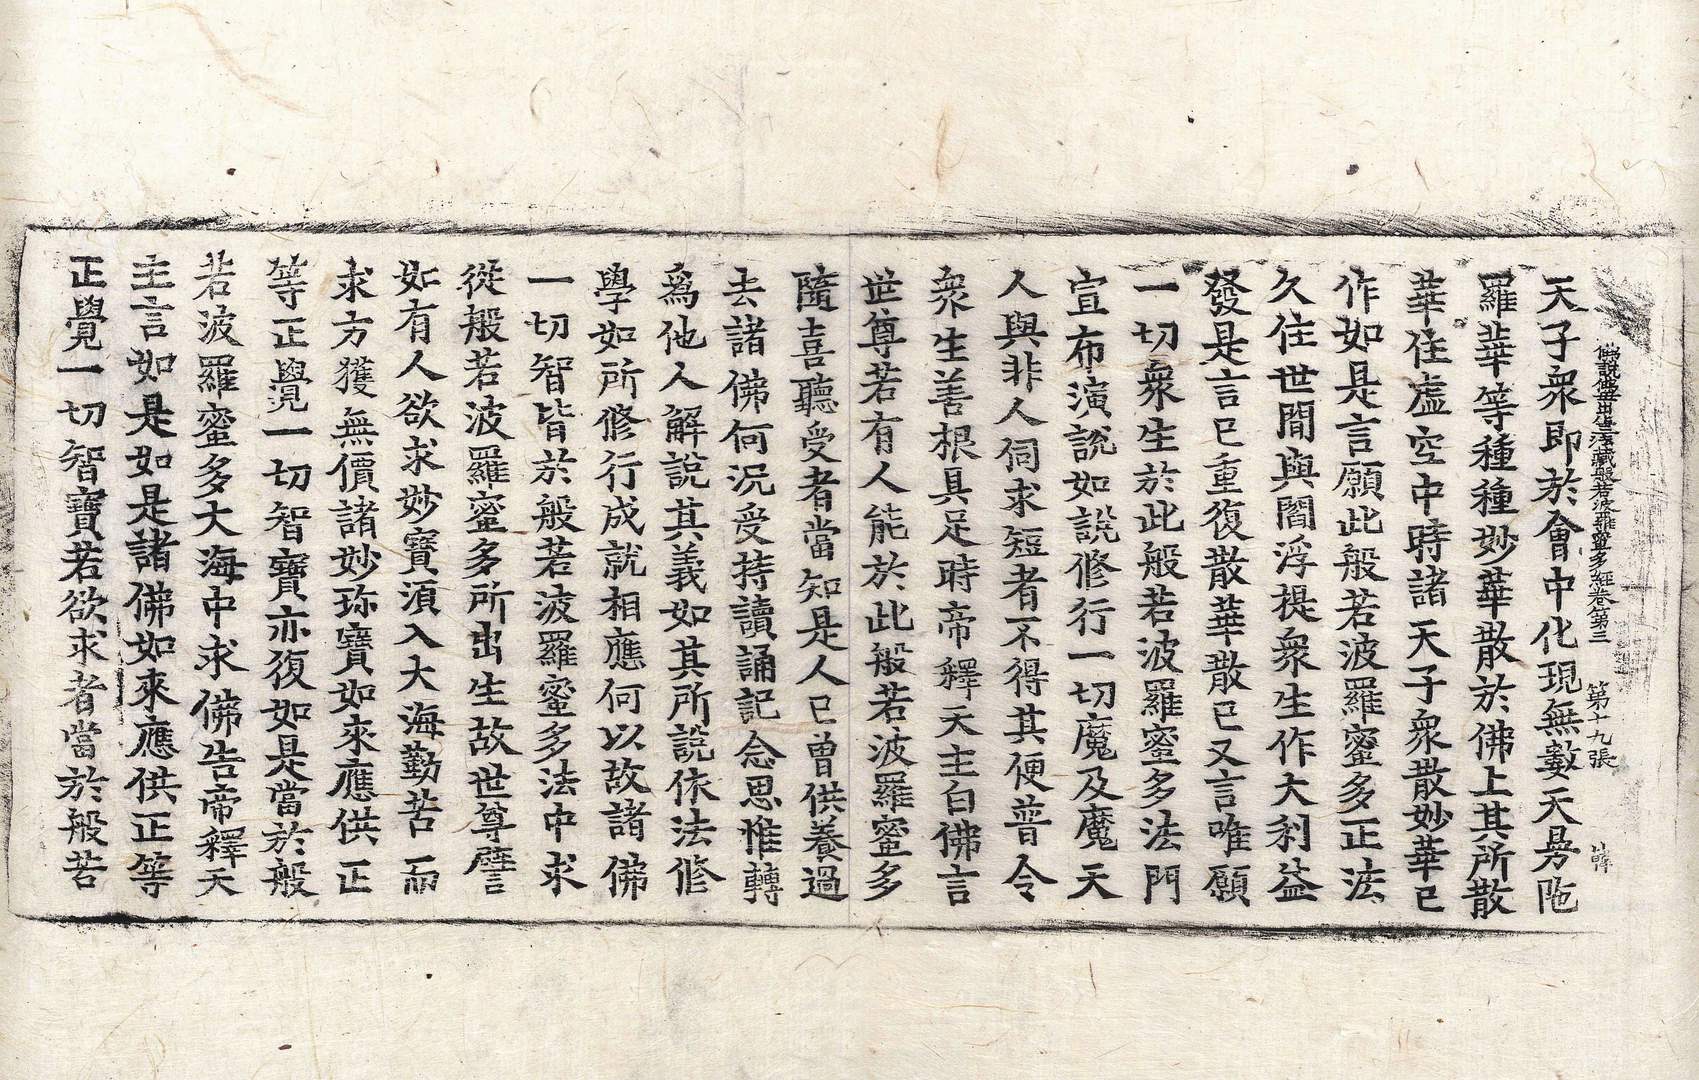 佛說佛母出生三法藏般若波羅蜜多經卷第三 第十九張
天子衆即於會中化現無數天曼陁
羅華等種種妙華散於佛上其所散
華住虛空中時諸天子衆散妙華已
作如是言願此般若波羅蜜多正法
久住世間與閻浮提衆生作大利益
發是言已重復散華散已又言唯願
一切衆生於此般若波羅蜜多法門
宣布演說如說修行一切魔及魔天
人與非人伺求短者不得其便普令
衆生善根具足時帝釋天主白佛言
世尊若有人能於此般若波羅蜜多
隨喜聽受者當知是人已曾供養過
去諸佛何況受持讀誦記念思惟轉
爲他人解說其義如其所說依法修
學如所修行成就相應何以故諸佛
一切智皆於般若波羅蜜多法中求
從般若波羅蜜多所出生故世尊譬
如有人欲求妙寶須入大海勤苦而
求方獲無價諸妙珎寶如來應供正
等正覺一切智寶亦復如是當於般
若波羅蜜多大海中求佛告帝釋天
主言如是如是諸佛如來應供正等
正覺一切智寶若欲求者當於般若